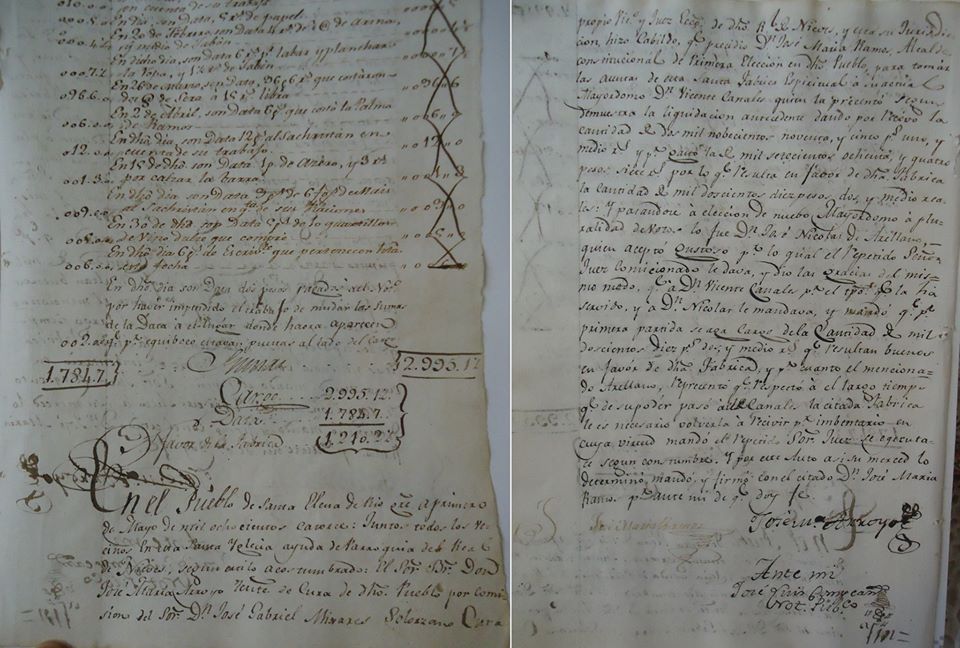 En dho dia, son Data
En 20 de Febrero, son Data
y medio de Jabon
En dicho dia, son data 6 rs. p. labar y planchar
007.7.2 la Ropa, y 1½ r. de Jabon
En 26 de Marzo, son Data, 96 ps 6 rs que costaron
096.6. de Sera à 15 rs libra
En 2 de Abril, son Data 6 ps que costó la Palma
006.0 de Ramos
En dho dia, son Data 12 ps al Sachristan en
012. cuenta de su trabajo
En 15 de dho, son Data 1 p. de Azero, y 3 rs
001.3 por calzar la barra
En dho dia son Data 9 ps de 6 de Maiz
009. al Sachristan en de sus Raciones
En 30 de dho, son Data 5 ps de 10 quartillos
005. de Vino dulce que compré
En dho dia 6 ps de Escrib. que pertenecen hta
006.0 esta fecha
En dho dia son Data dos pesos pagados al Not.
por haver impendido el trabajo de mudar las Sumas
de la Data à el lugar donde haora aparecen
002. que pr. equiboco estavan puestas al lado del Cargo
1.784.7. Sumas 2.995.1½
Cargo 2.995.1½
Data 1.784.7.
A favor de la Fabrica 1.210.2½
En el Pueblo de Santa Elena de Rio a primero
de Mayo de mil ochocientos catorce: Juntos todos los Ve-
cinos en esta Santa Yglecia ayuda de Parroquia del Real
de Nieves, segun estilo acostumbrado: El Sor. Br. Don
José Maria Arroyo Tente. de Cura de dho. Pueblo por comi-
sion del Sor. Dr. José Gabriel Mirares Solorzano Cura
propio Vico. y Juez Ecco. de dho. Rl. de Nieves, y esta su Jurisdic-
cion, hizo Cabildo, qe. precidio Dn. José Maria Ramos, Alcalde
constitucional de Primera Elección en dho. Pueblo, para tomar
las cuentas de esta Santa Fabrica Espiritual à su actual
Mayordomo Dn. Vicente Canales quien la precentó segun
demuestra la liquidacion antecedente dando por recivo la
cantidad de dos mil nobecientos noventa, y cinco ps. uno, y
medio rs. y pr. Gasto la de mil setecientos ochenta, y quatro
pesos siete rs. por lo qe. resulta en favor de dha. Fabrica
la Cantidad de mil doscientos diez pesos, dos, y medio rea-
les: Y pasandose à eleccion de nuebo Mayordomo à plu-
ralidad de Votos, lo fue Dn. José Nicolas de Arellano,
quien aceptó Gustoso pr. lo qual el repetido Señor
Juez Comicionado le dava, y dio las gracias del mis-
mo modo, que à Dn. Vicente Canales pr. el tpo. qe. la ha
servido, y à Dn. Nicolas le mandava, y mandó qe. pr.
primera partida se aga Cargo de la Cantidad de mil
doscientos diez ps. dos, y medio rs. qe. resultan buenos
en favor de dha. Fabrica, y pr. cuanto el menciona-
do Arellano, represento qe. respecto à el largo tiempo
qe. de su poder pasó à Canales la citada Fabrica
le es necesario volverla à recivir pr. imbentario en
cuya virtud mandó el repetido Sor. Juez se egecuta-
se segun costumbre. Y por este Auto asi su merced lo
determinó, mandó, y firmó con el citado Dn. José Maria
Ramos pr. ante mi de qe. doy fé.
José Ma. Arroyo
Ante mi
José Luis
Not. Pubco.